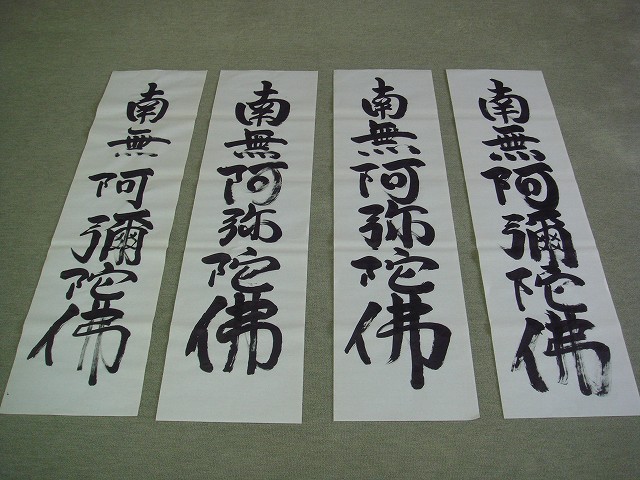 南無阿彌陀佛
南無阿弥陀佛
南無阿弥陀佛
南無阿彌陀佛